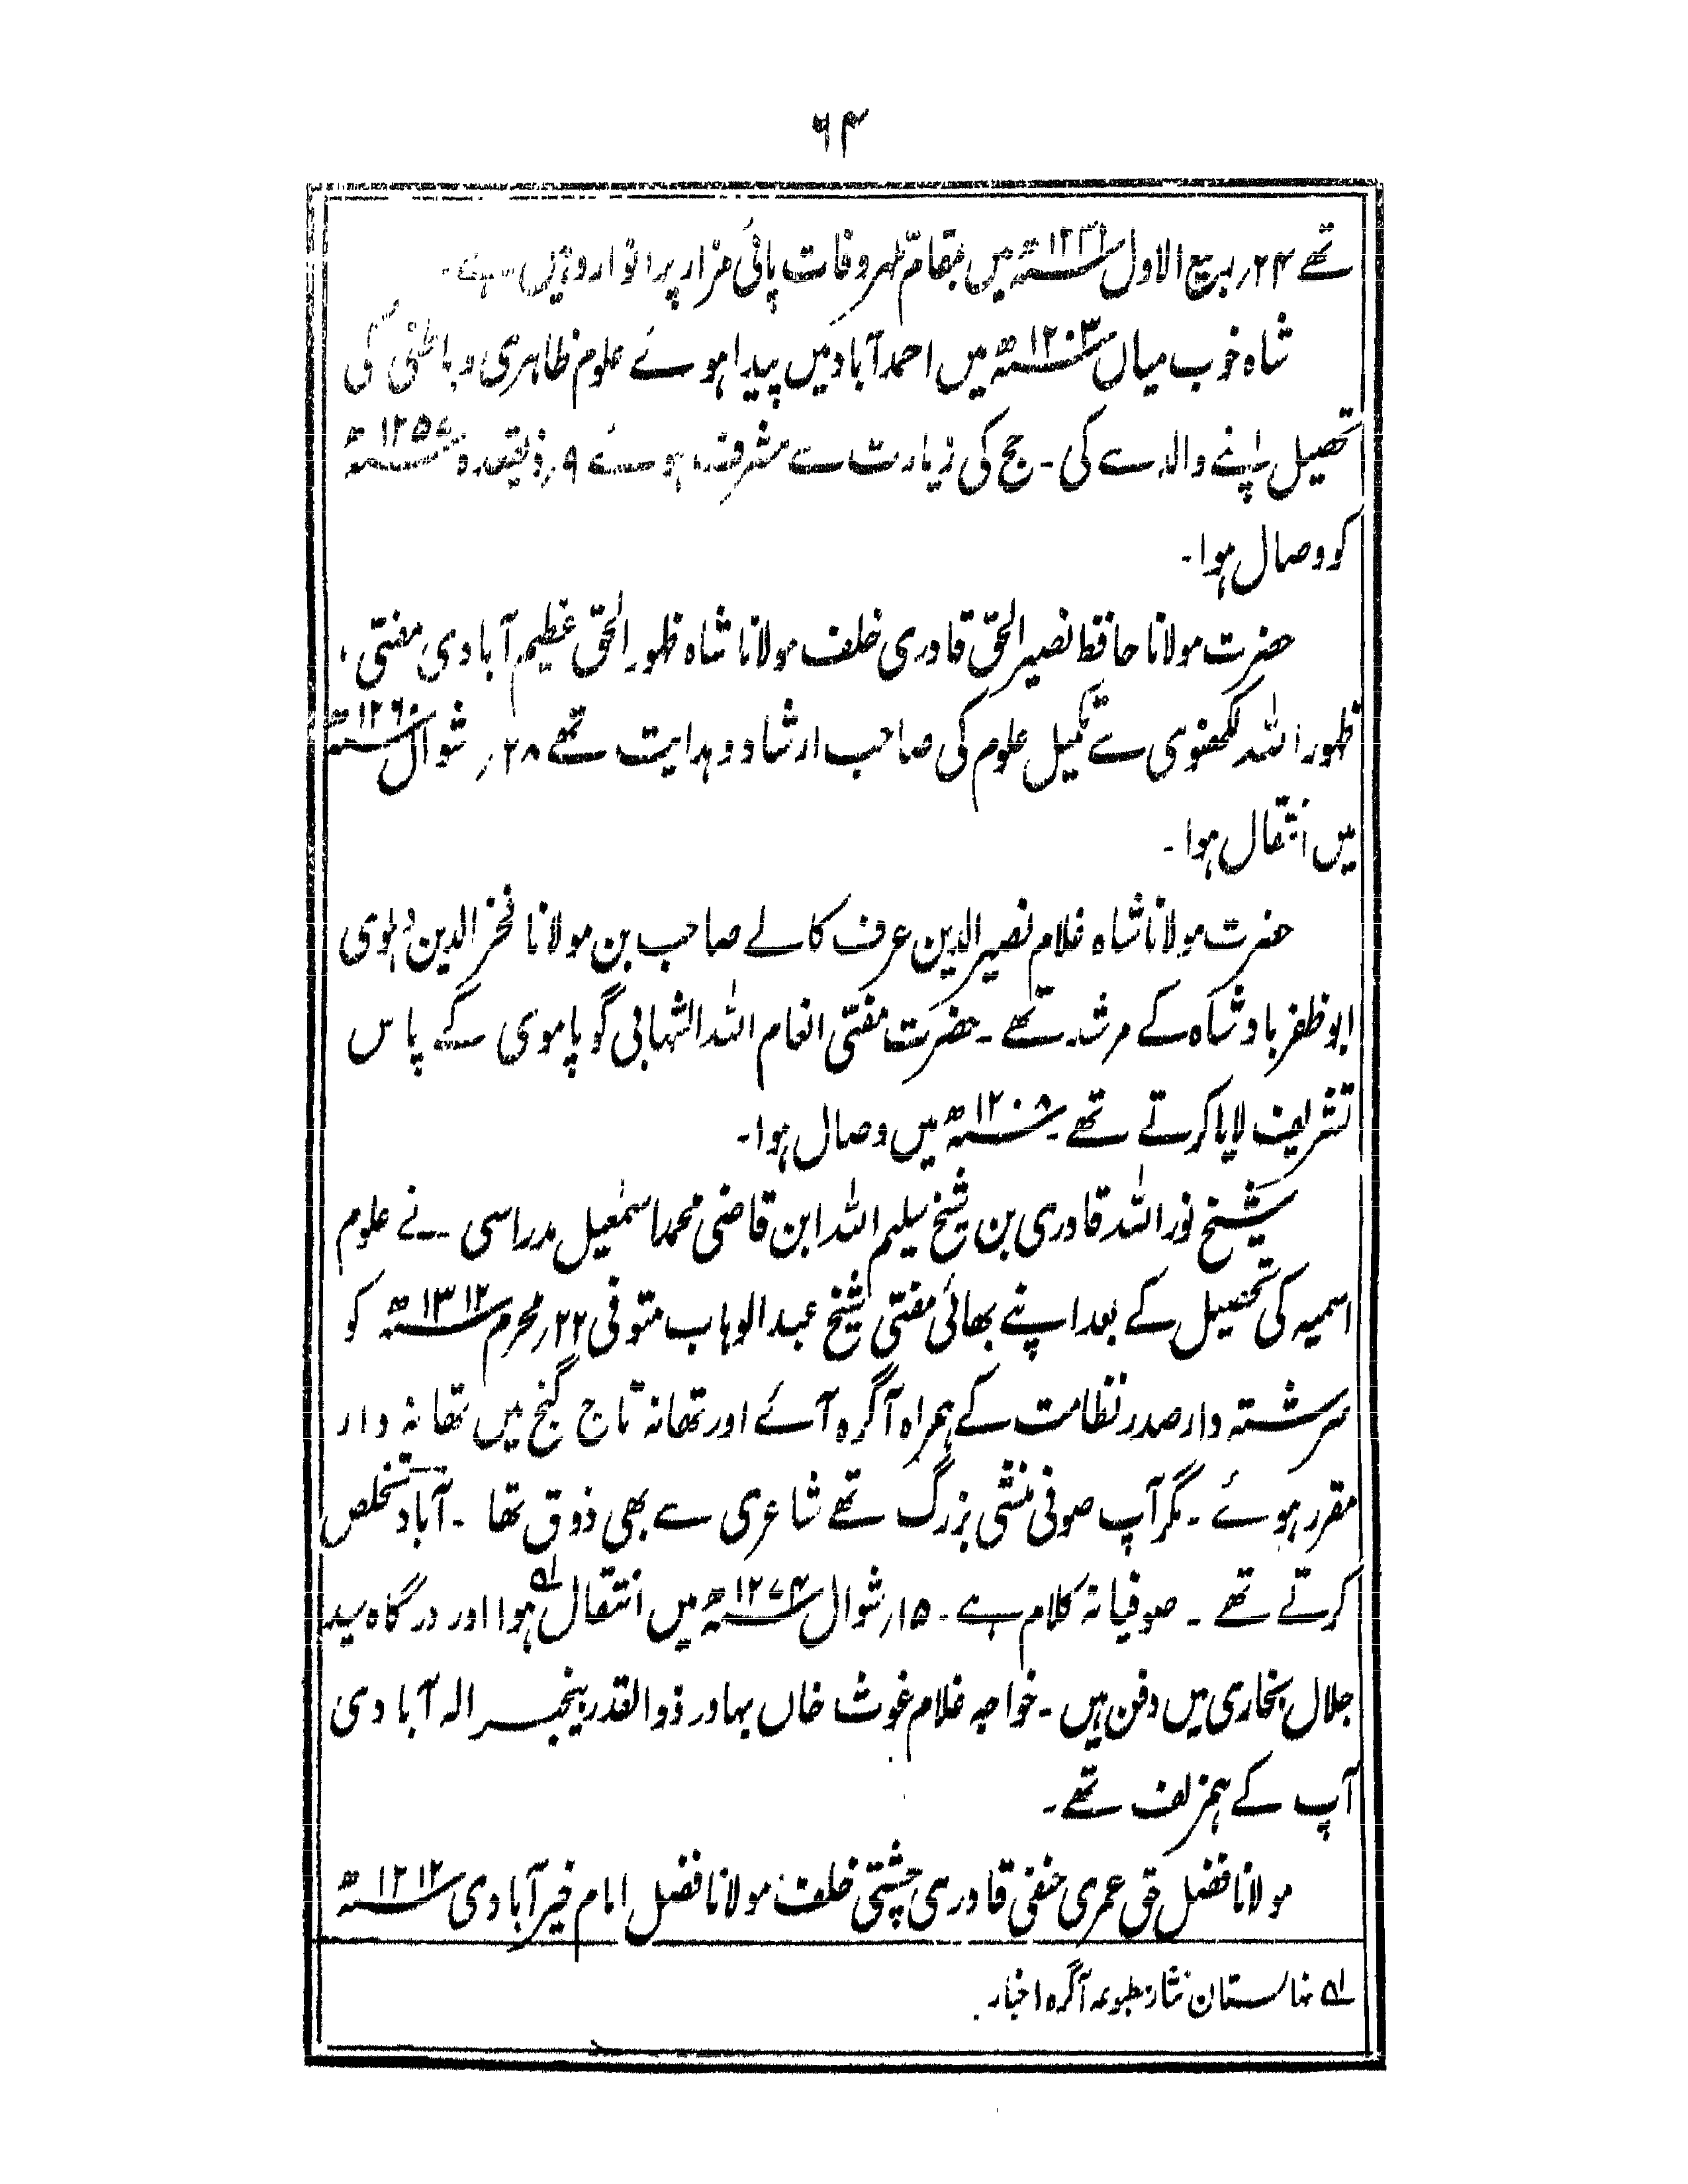 ۶۴
تھے ۲۴؍ربیع الاول ۱۲۳۱ھ میں بمقام مہر وفات پائی مزار پر انوار وہیں ہے۔
شاہ خوب میاں ۱۲۰۳ھ میں احمدآباد میں پیدا ہوئے علوم ظاہری و باطنی کی
تحصیل اپنے والد سے کی۔ حج کی زیارت سے مشرف ہوئے ۹؍ذیقعدہ ۱۲۵۷ھ
کو وصال ہوا۔
حضرت مولانا حافظ نصیر الحق قادری خلف مولانا شاہ ظہور الحق عظیم آبادی مفتی
ظہور اللہ لکھنوی سے تکمیل علوم کی صاحب ارشاد و ہدایت تھے ۲۸؍ شوال ۱۲۶۰ھ
میں انتقال ہوا۔
حضرت مولانا شاہ غلام نصیر الدین عرف کالے صاحب بن مولانا فخر الدین دہلوی
ابو ظفر بادشاہ کے مرشد تھے۔ حضرت مفتی انعام اللہ الشہابی گوپاموی کے پاس
تشریف لایا کرتے تھے۔ ۱۲۰۸ھ میں وصال ہوا۔
شیخ نور اللہ قادری بن شیخ سلیم اللہ ابن قاضی محمد اسمٰعیل مدراسی نے علوم
اسمیہ کی تحصیل کے بعد اپنے بھائی مفتی شیخ عبد الوہاب متوفی ۲۲؍محرم ۱۳۱۲ھ کو
سرشتہ دار صدر نظامت کے ہمراہ آگرہ آئے اور تھانہ تاج گنج میں تھانہ دار
مقرر ہوئے۔ مگر آپ صوفی منش بزرگ تھے شاعری سے بھی ذوق تھا۔ آباد تخلص
کرتے تھے۔ صوفیانہ کلام ہے۔ ۱۵؍شوال ۱۲۷۴ھ میں انتقال ہوا لہ اور درگاہ سید
جلال بخاری میں دفن ہیں۔ خواجہ غلام غوث خاں بہادر ذوالقدر بیخبر الہ آبادی
آپ کے ہمزلف تھے۔
مولانا فضل حق عمری حنفی قادری چشتی خلف مولانا فضل امام خیر آبادی ۱۲۱۲ھ
لہ نہالستان نثار مطبوعہ آگرہ اخبار۔